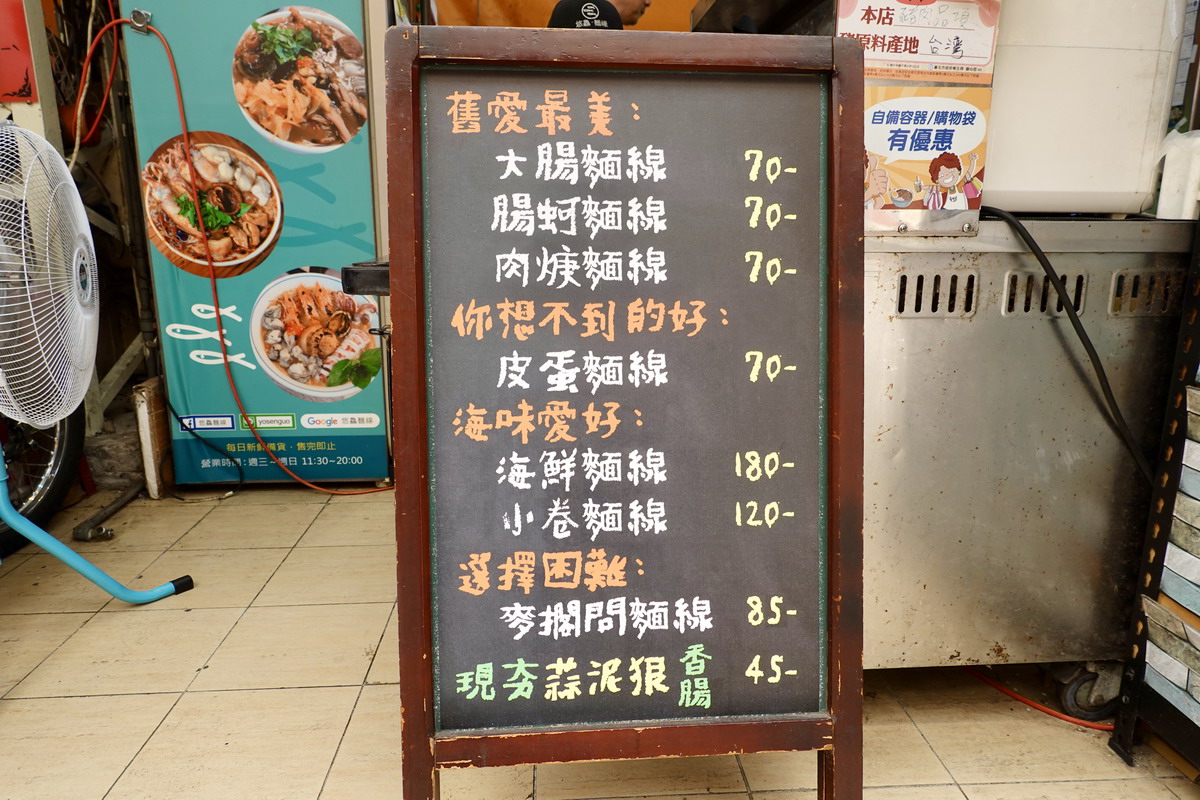 舊愛最美：
大腸麵線 70-
腸蚵麵線 70-
肉焿麵線 70-
你想不到的好：
皮蛋麵線 70-
海味愛好：
海鮮麵線 180-
小卷麵線 120-
選擇困難：
麥擱問麵線 85-
現夯蒜泥狠香腸 45-
悠蟲麵線
yosenguo
Google 悠蟲麵線
每日新鮮備貨．售完即止
營業時間：週三～週日 11:30~20:00
本店
原料產地 台灣
自備容器/購物袋
有優惠